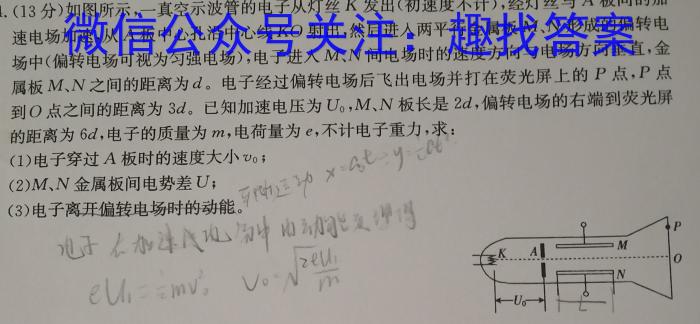 .(13分)如图所示,一真空示波管的电子从灯丝K发出(初速度不计),经灯丝与A板间的加
速电场加速,从A板中心孔沿中心线KO射出,然后进入两平行金属板M、N形成的偏转电
微信公众号关注:趣找答案
场中(偏转电场可视为匀强电场),电子进入M、N间电场时的速度方向与电场方向垂直,金
属板M、N之间的距离为d。电子经过偏转电场后飞出电场并打在荧光屏上的P点,P点
到O点之间的距离为3d。已知加速电压为U₀,M、N板长是2d,偏转电场的右端到荧光屏
的距离为6d,电子的质量为m,电荷量为e,不计电子重力,求:
(1)电子穿过A板时的速度大小v₀;
(2)M、N金属板间电势差U;
(3)电子离开偏转电场时的动能。
电子在加速
eU₁=½mv₀² v₀=√2eU₁/m
K
A
M
N
P
O
U₀
L